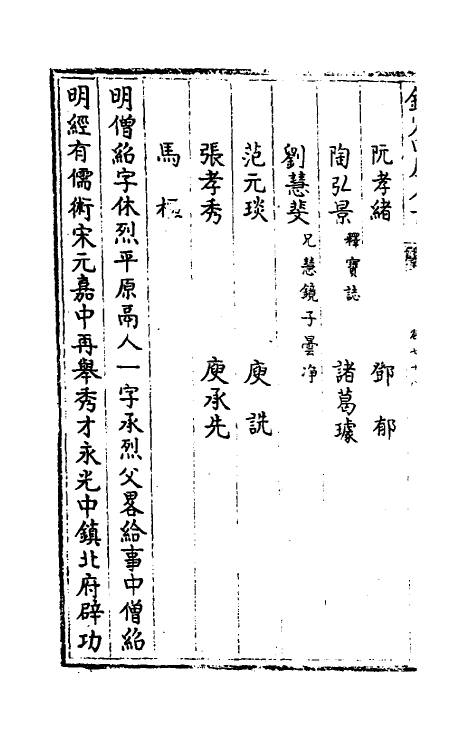 阮孝緒 鄧郁
陶弘景 釋寶誌 諸葛璩
劉慧斐 兄慧鏡 子曇净
范元琰 庾詵
張孝秀 庾承先
馬樞
明僧紹字休烈平原鬲人一字承烈父畧給事中僧紹
明經有儒術宋元嘉中再舉秀才永光中鎮北府辟功